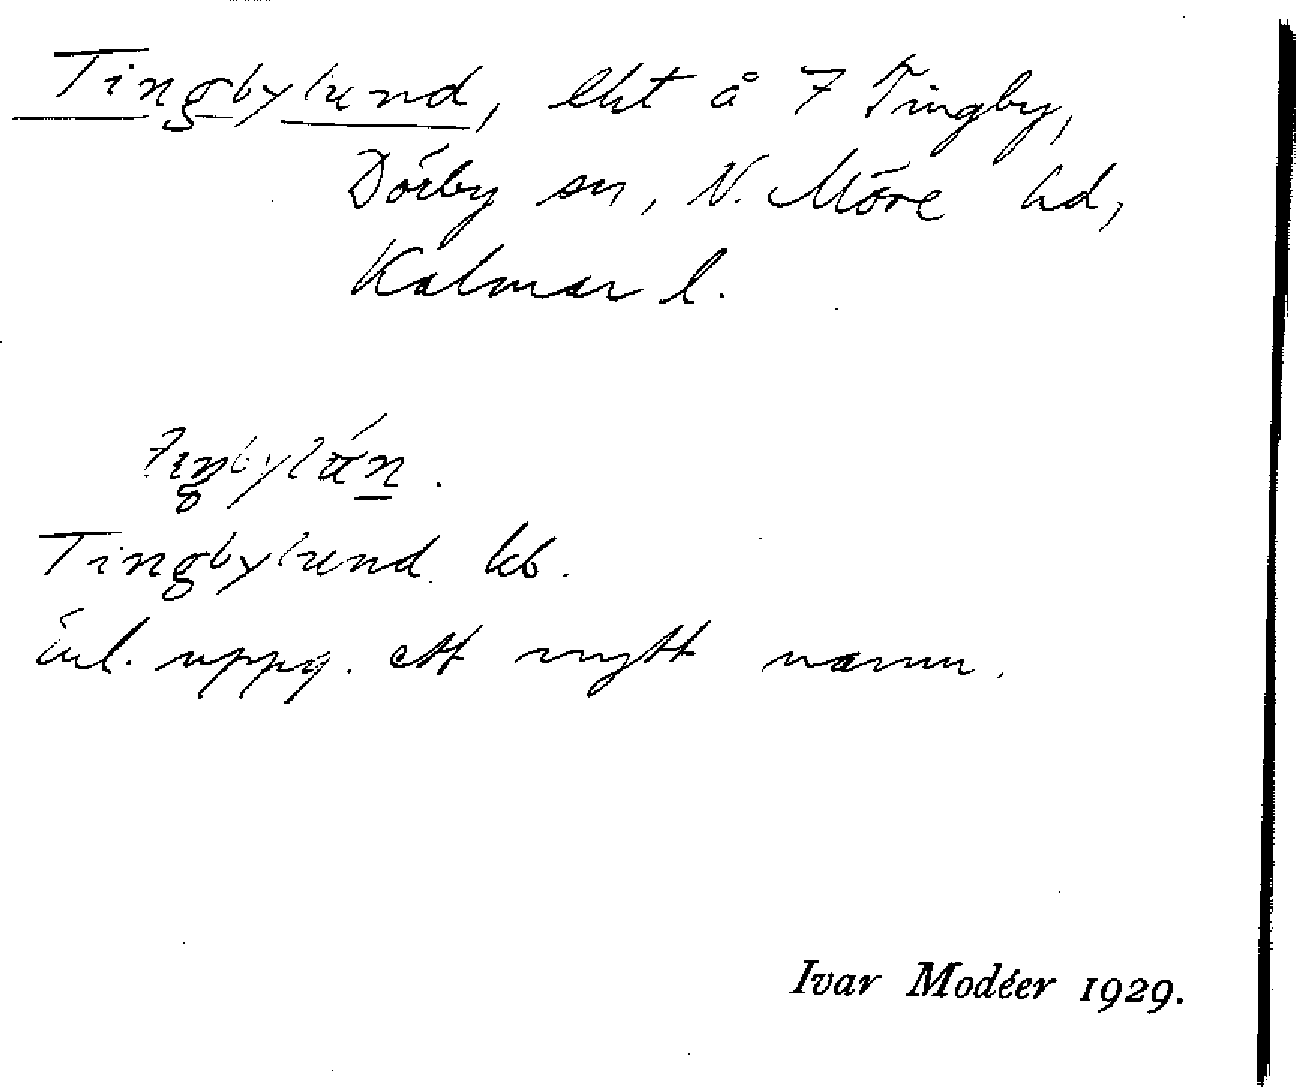 Tingbylund, lht å 7 Tingby,
Dörby sn, N. Möre hd,
Kalmar l.
Tingbylund kb.
enl. uppg. ett nytt namn.
Ivar Modéer 1929.